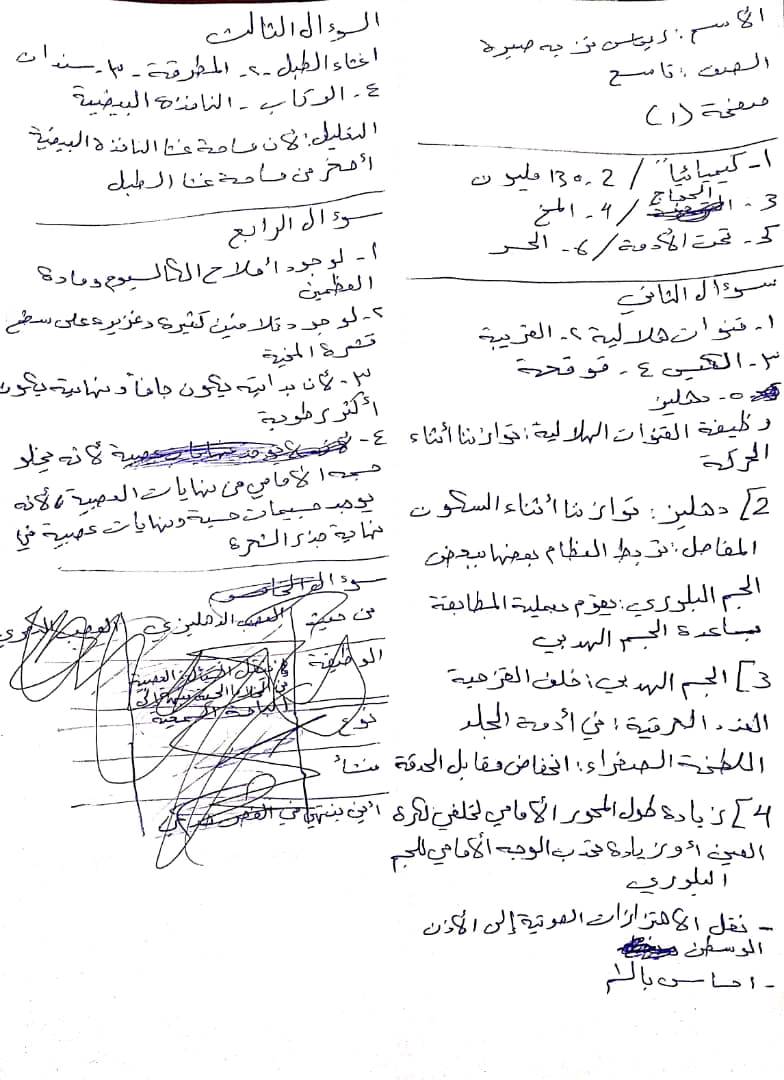 الأسم: ريماس نزيه صبرة
الصف: تاسع
صفحة (١)
١- كيميائياً / 2. 130 مليون
3- الحجاج / 4- المخ
5- تحت الأدمة / 6- الحسر
سؤال الثاني
١- قنوات هلالية ٢- القريبة
٣- الكييس ٤- قوقعة
٥- دهليز
وظيفة القنوات الهلالية: توازننا أثناء
الحركة
2] دهليز: توازننا أثناء السكون
المفاصل: تربط العظام بعضها ببعض
الجسم البلوري: يقوم بعملية المطابقة
بمساعدة الجسم الهدبي
3] الجسم الهدبي: خلف القزحية
الغدد العرقية: في أدمة الجلد
اللطخة الصفراء: انخفاض مقابل الحدقة
4] زيادة طول المحور الأمامي لخلفي لكرة
العين أو زيادة تحدب الوجه الأمامي للجسم
البلوري
- نقل الاهتزازات الصوتية إلى الأذن
الوسطى
- احساس بالألم
السوؤال الثالث
اغشاء الطبل -٢- المطرقة -٣- سندان
٤- الركاب - النافذة البيضية
التعليل: لأن مساحة غشا النافذة البيضية
أصغر من مساحة غشا الطبل
سوؤال الرابع
١- لوجود أملاح الكالسيوم ومادة
العظمين
٢- لوجود تلافيف كثيرة وغزيرة على سطح
قشرة المخية
٣- لأن بدايته يكون جافاً ونهايته يكون
أكثر رطوبة
٤- لأنه يخلو
جسمه الأمامي من نهايات العصبية ولأنه
يوجد جسيمات حسية ونهايات عصبية في
نهاية جذر الشعرة
سؤال الخامس
من حيث العصب الدهليزي العصب
الوظيفة
نوع
منشأ
أين ينتهي في